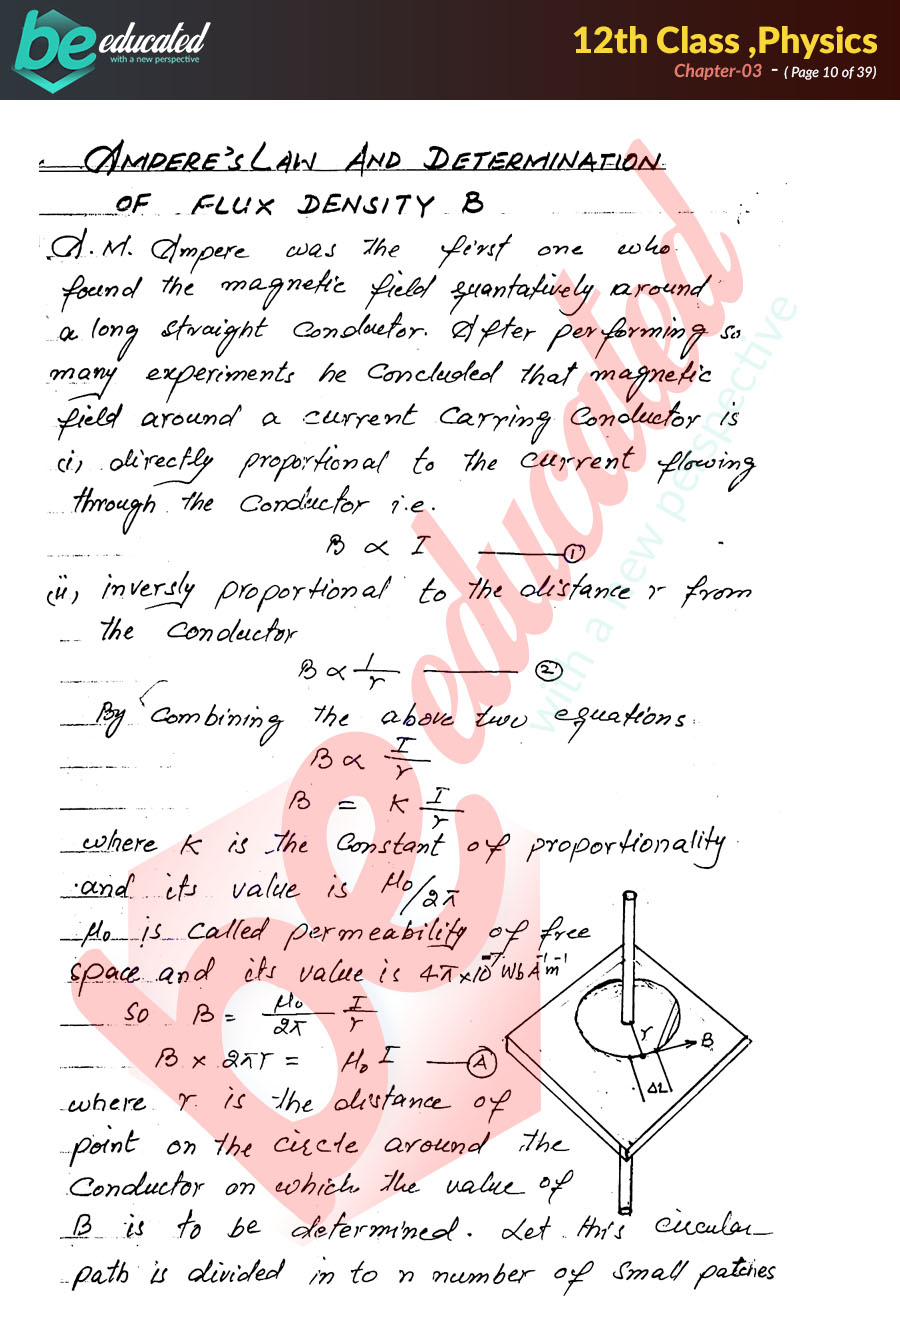 be educated
with a new perspective
12th Class ,Physics
Chapter-03 - ( Page 10 of 39)
AMPERE'S LAW AND DETERMINATION
OF FLUX DENSITY B
A. M. Ampere was the first one who
found the magnetic field quantatively around
a long straight Conductor. After performing so
many experiments he Concluded that magnetic
field around a current Carring Conductor is
(i) directly proportional to the current flowing
through the Conductor i.e.
B ∝ I ——— ①
(ii) inversly proportional to the distance r from
the Conductor
B ∝ 1/r ——— ②
By Combining the above two equations
B ∝ I/r
B = K I/r
where K is the Constant of proportionality
and its value is μ₀/2π
μ₀ is Called permeability of free
space and its value is 4π×10⁻⁷ Wb A⁻¹ m⁻¹
So B = μ₀/2π I/r
B × 2πr = μ₀ I ——— Ⓐ
where r is the distance of
point on the circle around the
Conductor on which the value of
B is to be determined. Let this circular
path is divided in to n number of small patches
r
B
ΔL
be educated
with a new perspective